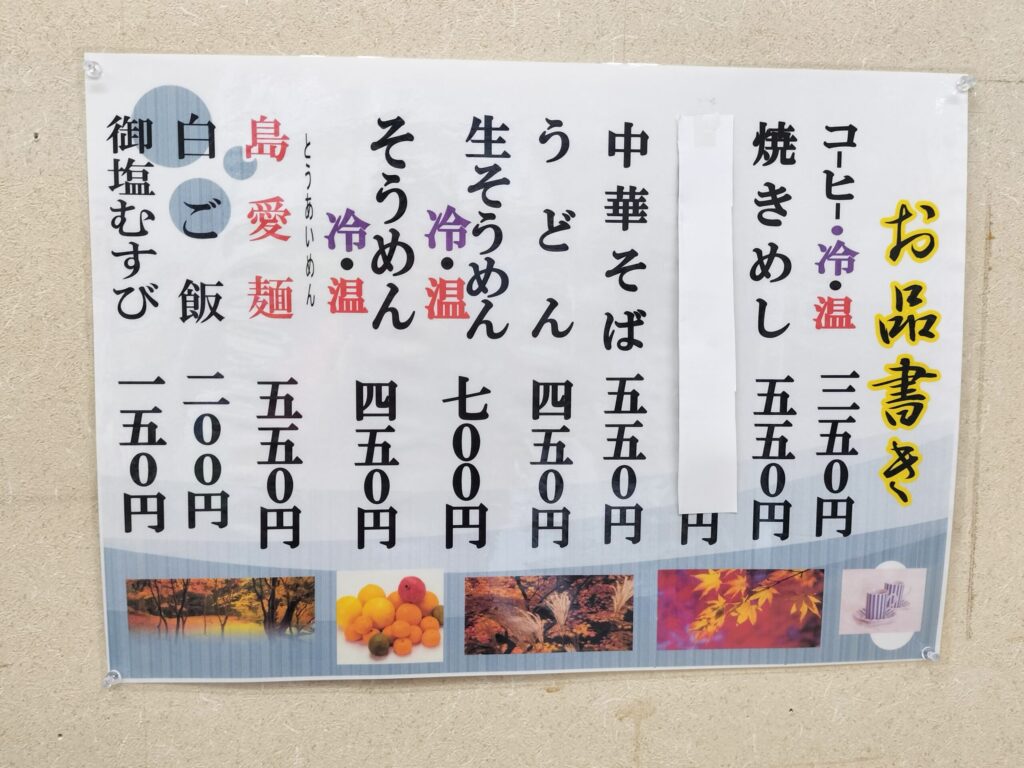 お品書き
コーヒー・冷・温 三五〇円
焼きめし 五五〇円
円
中華そば 五五〇円
うどん 四五〇円
生そうめん 冷・温 七〇〇円
そうめん 冷・温 四五〇円
とうあいめん
島愛麺 五五〇円
白ご飯 二〇〇円
御塩むすび 一五〇円